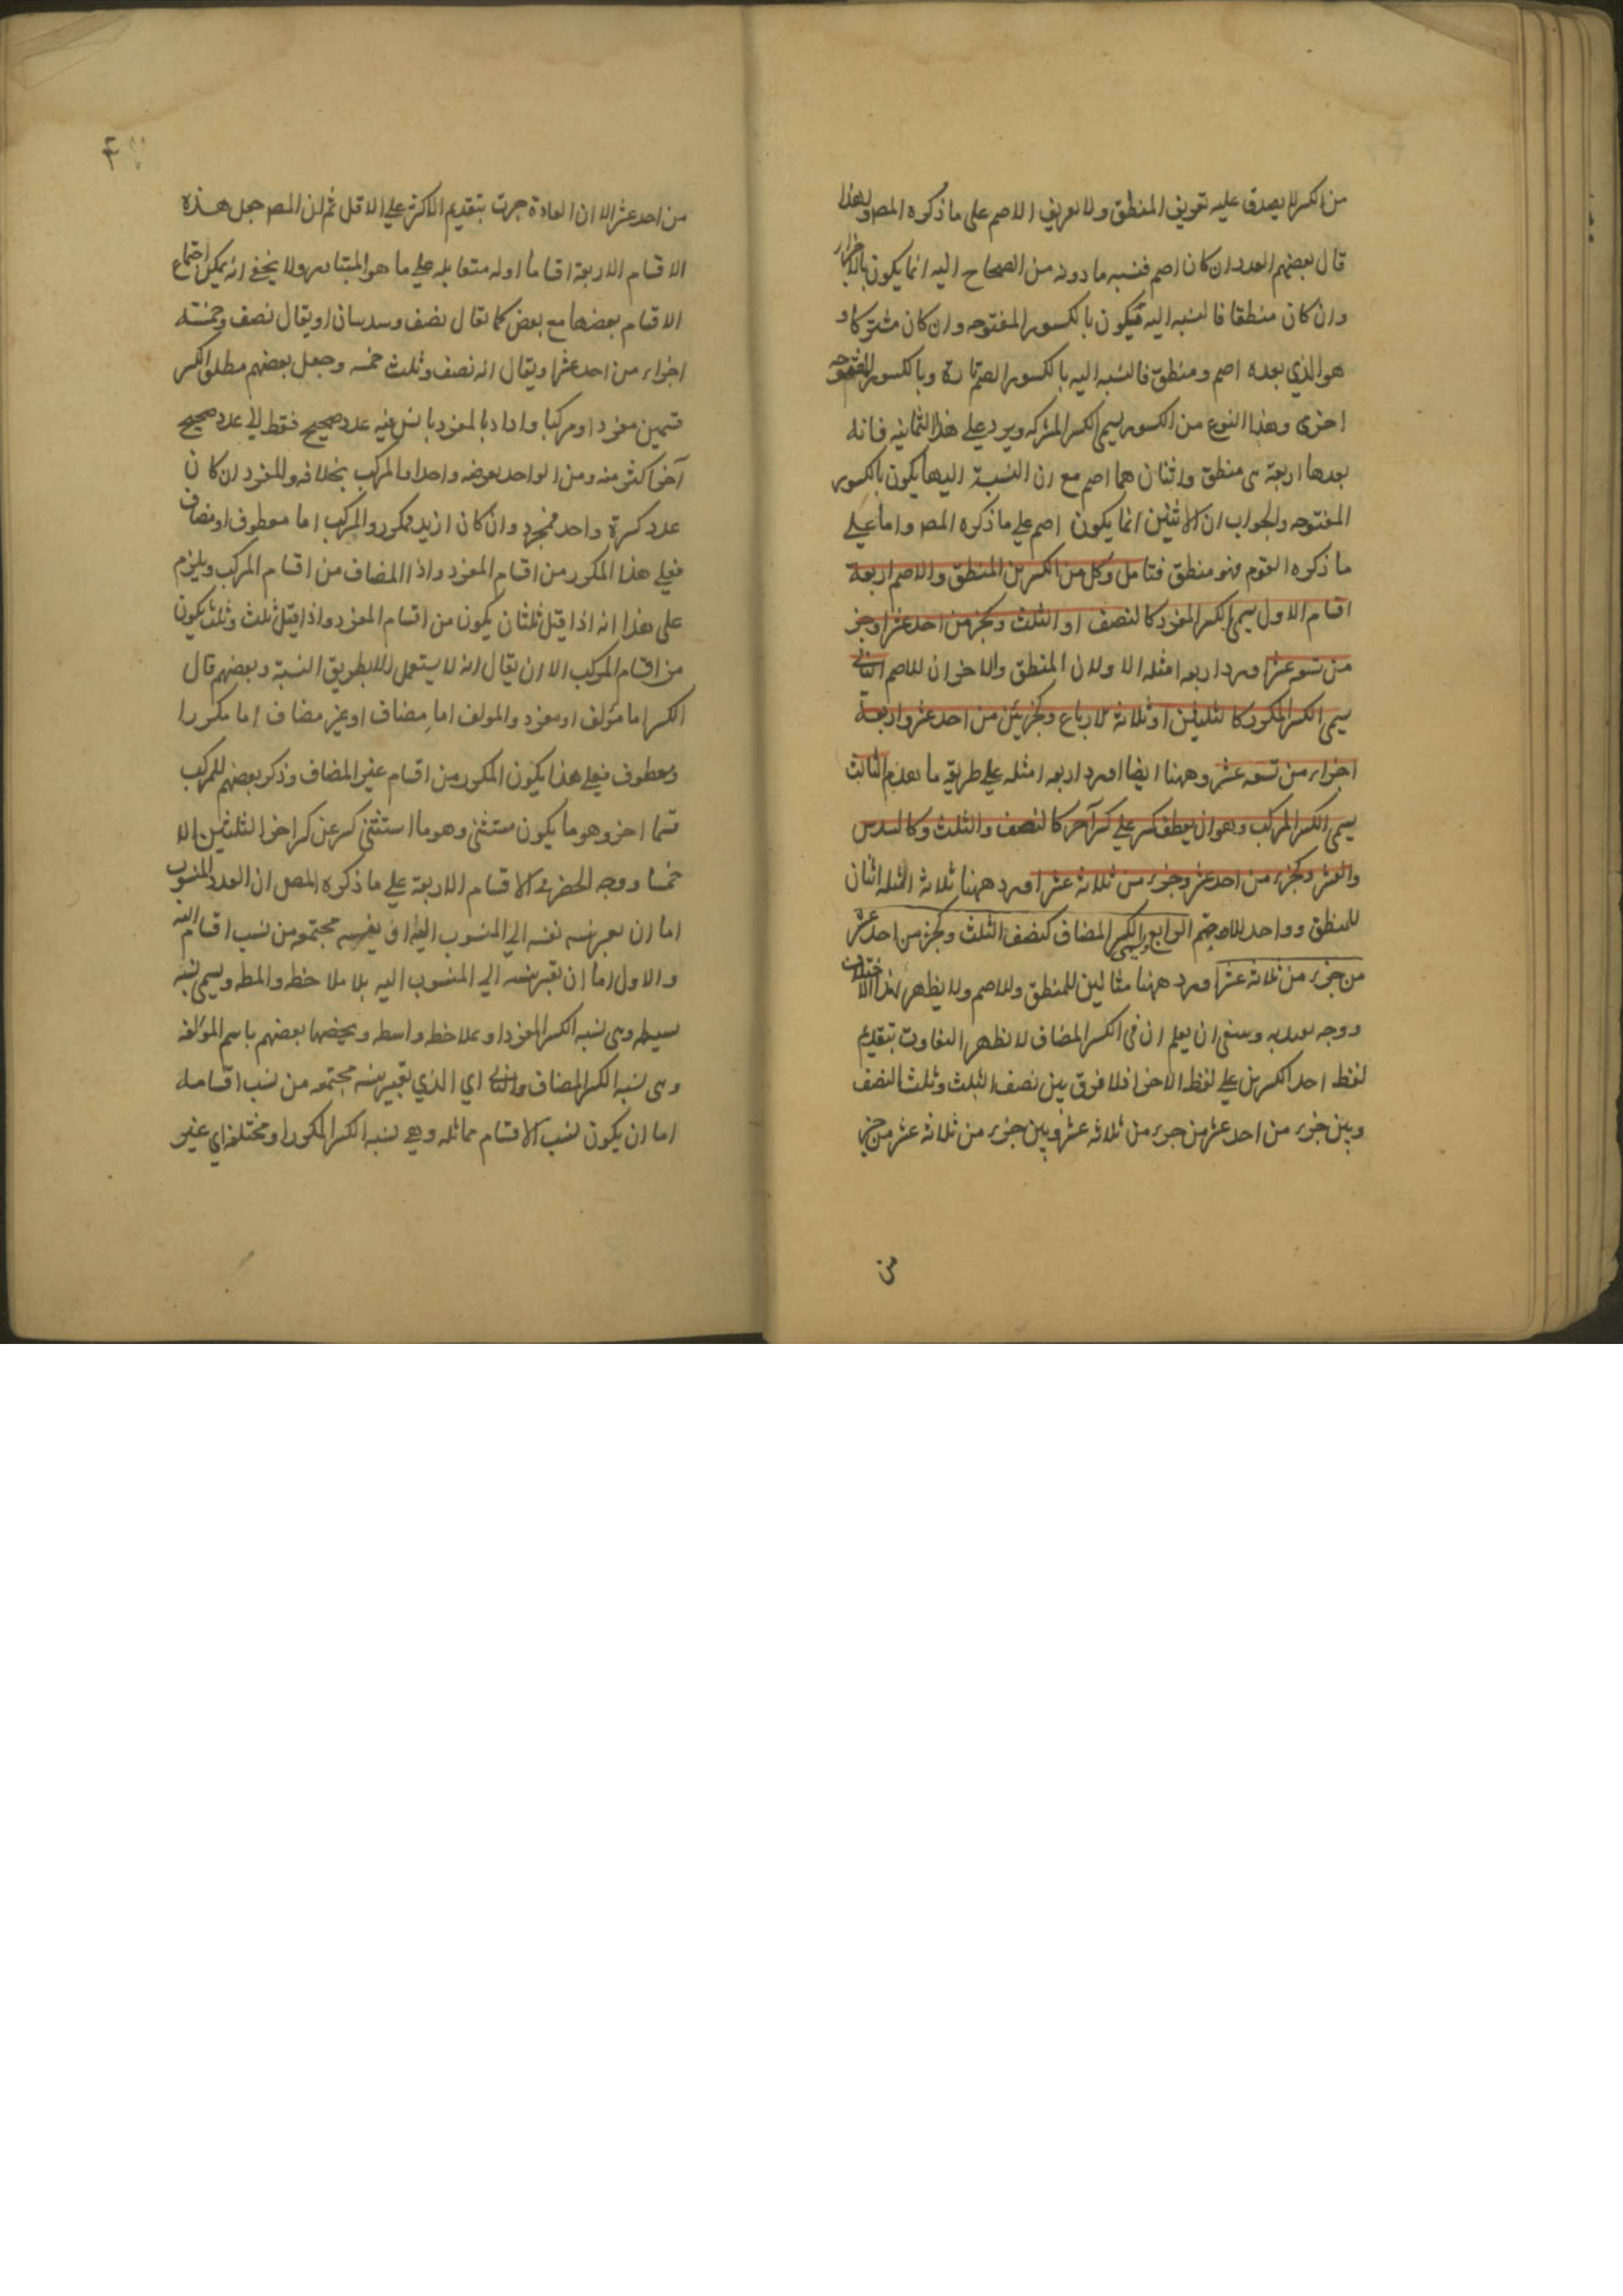 من الكسر لا يصدق عليه تعريف المنطق ولا تعريف الاصم على ما ذكره المص ولهذا
قال بعضهم العدد ان كان اصم فنسبه ما دونه من الصحاح اليه انما يكون بالاجزاء
وان كان منطقا فالنسبه اليه فيكون بالكسور المفتوحه وان كان مشتركا و
هو الذي بعده اصم ومنطق فالنسبه اليه بالكسور الصم تارة وبالكسور المفتوحه
اخرى وهذا النوع من الكسور يسمى الكسر المشركه ويرد على هذا الثمانيه فانه
بعدها اربعة هى منطق واثنان هما اصم مع ان النسبة اليها يكون بالكسور
المفتوحه والجواب ان الاثنين انما يكون اصم على ما ذكره المص واما على
ما ذكره القوم فهو منطق فتامل وكل من الكسرين المنطق والاصم اربعة
اقسام الاول يسمى الكسر المفرد كالنصف او الثلث وكجزء من احد عشر او جزء
من تسعه عشر اورد اربعه امثله الاولان المنطق والاخران للاصم الثانى
يسمى الكسر المكرر كالثلثين او ثلاثة الارباع وكجزئين من احد عشر واربعة
اجزاء من تسعه عشر وههنا ايضا اورد اربعه امثله على طريقه ما تقدم الثالث
يسمى الكسر المركب وهو ان يعطف كسر على كسر آخر كالنصف والثلث وكالسدس
والعشر وكجزء من احد عشر وجزء من ثلاثة عشر اورد ههنا ثلاثة امثله اثنان
للمنطق وواحد للاصم الرابع يسمى الكسر المضاف كنصف الثلث وكجزء من احد عشر
من جزء من ثلاثة عشر اورد ههنا مثالين للمنطق وللاصم ولا يظهر لهذا الاختلاف
ووجه يعتد به وينبغى ان يعلم ان فى الكسر المضاف لا يظهر التفاوت بتقديم
لفظ احد الكسرين على لفظ الاخر فلا فرق بين نصف الثلث وثلث النصف
وبين جزء من احد عشر من جزء من ثلاثة عشر وبين جزء من ثلاثة عشر من جزء
من
من احد عشر الا ان العادة جرت بتقديم الاكثر على الاقل ثم ان المص جعل هذه
الاقسام الاربعة اقساما اوليه متقابله على ما هو المتبادر ولا يخفى انه يمكن اجتماع
الاقسام بعضها مع بعض كما يقال نصف وسدسان او يقال نصف وخمسة
اجزاء من احد عشر او يقال انه نصف وثلث خمسه وجعل بعضهم مطلق الكسر
قسمين مفردا ومركبا وارادبالمفرد ما نسب فيه عدد صحيح فقط الى عدد صحيح
آخر اكثر منه ومن الواحد بعرضه واحدا والمركب بخلافه والمفرد ان كان
عدد كسره واحد فمجرد وان كان ازيد فمكرر والمركب اما معطوف او مضاف
فعلى هذا المكرر من اقسام المفرد واذا المضاف من اقسام المركب ويلزم
على هذا انه اذا قيل ثلثان يكون من اقسام المفرد واذا قيل ثلث وثلث يكون
من اقسام المركب الا ان يقال انه لا يستعمل الا بطريق النسبة وبعضهم قال
الكسر اما مؤلف او مفرد والمولف اما مضاف او غير مضاف اما مكررا
ومعطوف فعلى هذا يكون المكرر من اقسام غير المضاف وذكر بعضهم للمركب
قسما اخر وهو ما يكون مستثنى وهو ما استثنى كسر عن كسر اخر الثلثين الا
خمسا ووجه الحصر فى الاقسام الاربعة على ما ذكره المص ان العدد المنسوب
اما ان يعبر نسبه نفسه الى المنسوب اليه او بنسبه مجتمعه من نسب اقسام اليه
والاول اما ان تعتبر نسبه الى المنسوب اليه بلا ملاحظه واسطه ويسمى نسبه
بسيطه وهى نسبه الكسر المفرد او بملاحظه واسطه ويخصها بعضهم باسم المؤلفه
وهى نسبه الكسر المضاف والثانى اي الذي تعتبر نسبه مجتمعه من نسب اقسامه
اما ان يكون نسب الاقسام مماثله وهى نسبه الكسر المكرر او مختلفه اي غير